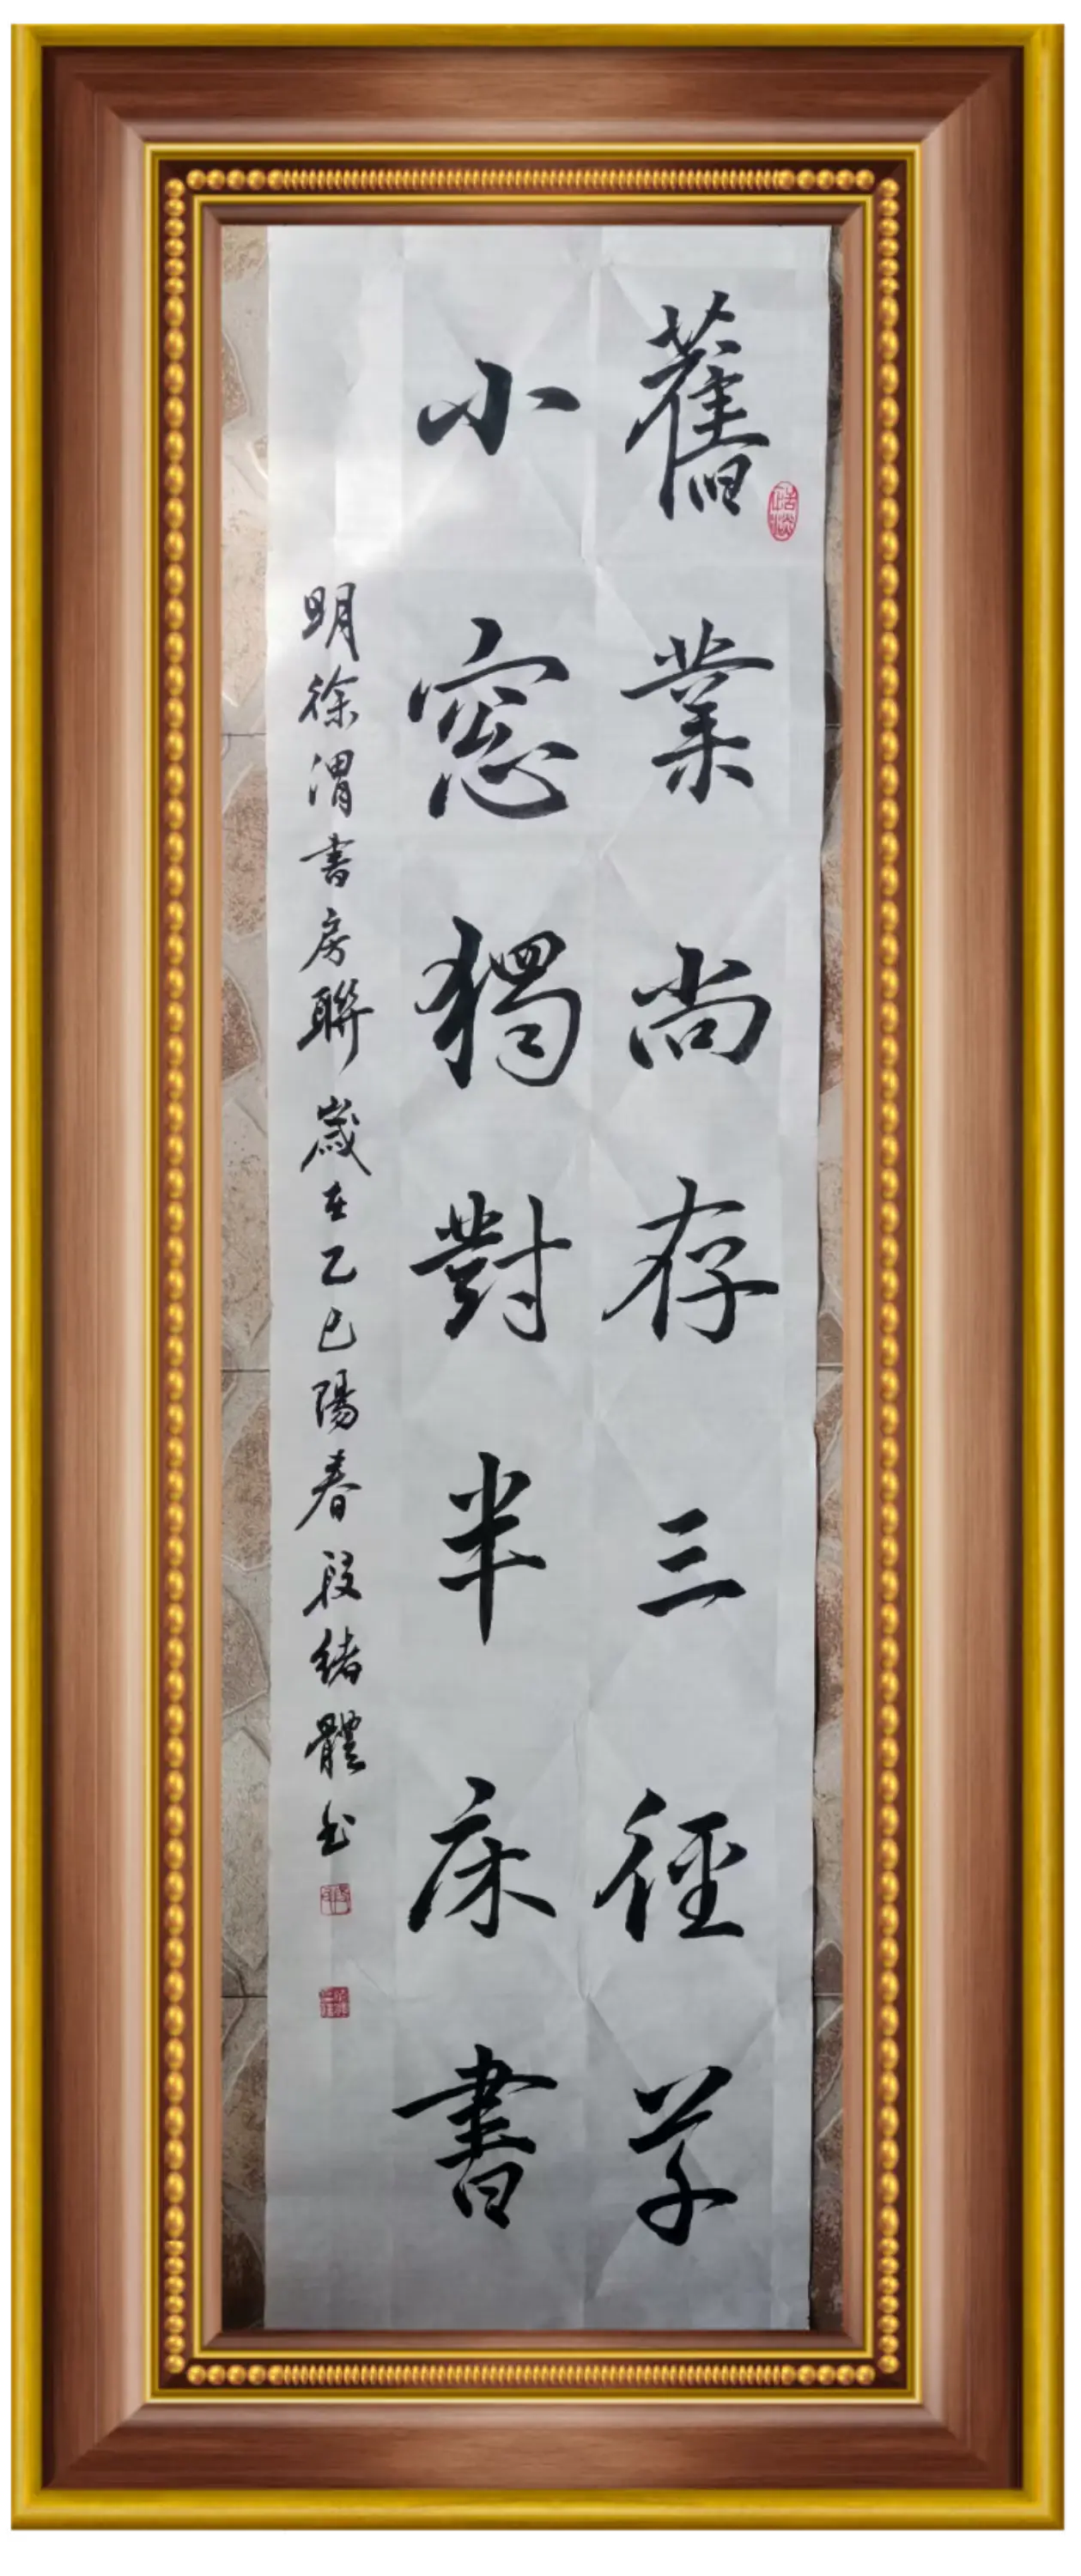 舊業尚存三徑草
小窓獨對半床書
明徐渭書房聯歲在乙巳陽春段緒體书